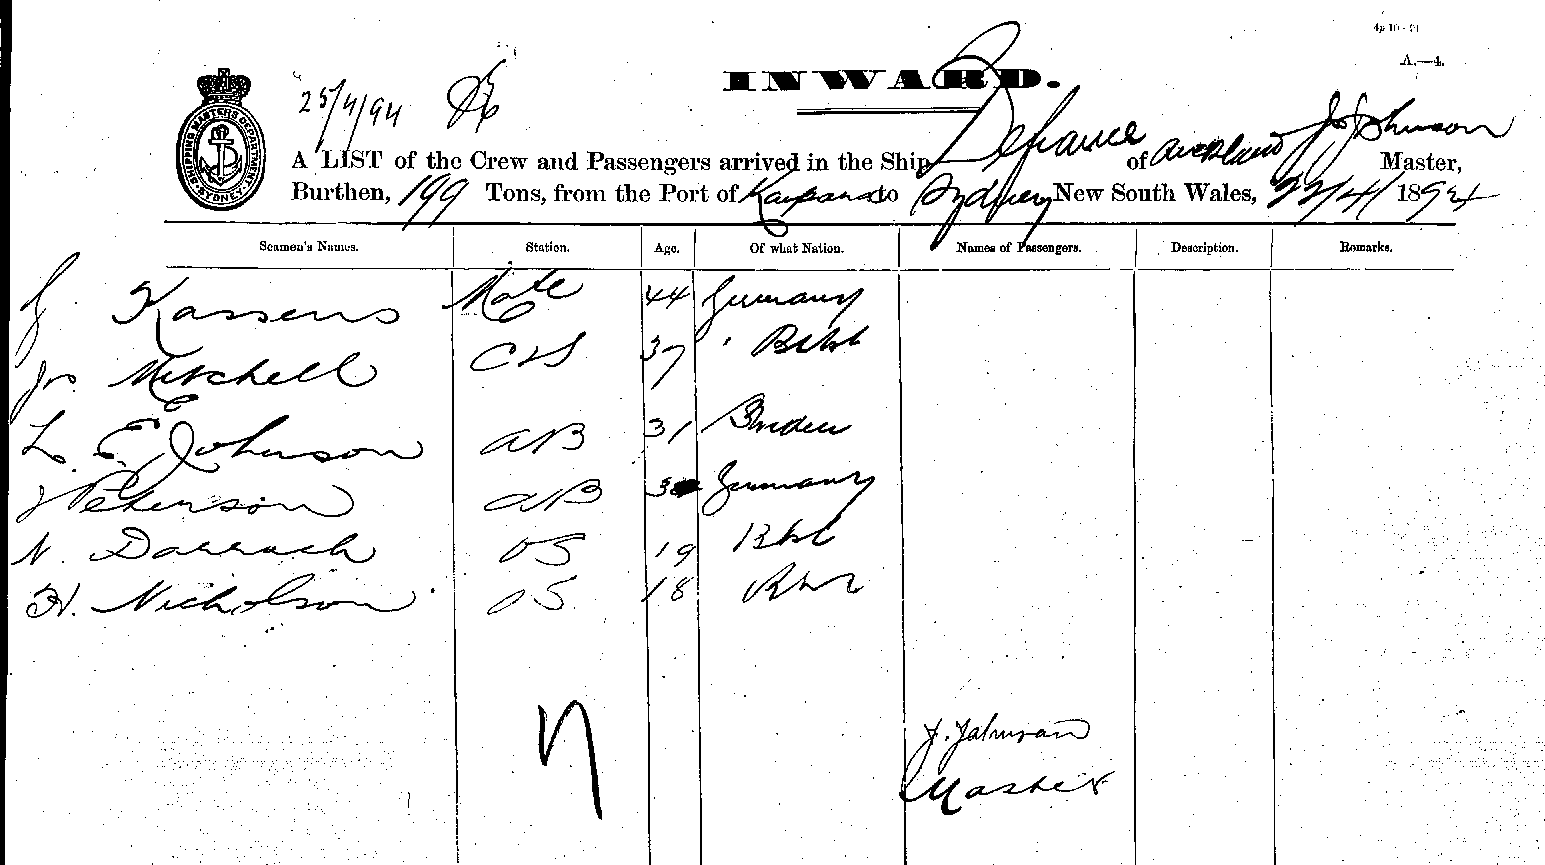 4p 10 - 91
A.—4.
INWARD.
25/4/94
SHIPPING MASTER'S DEPARTMENT SYDNEY
A LIST of the Crew and Passengers arrived in the Ship Defiance of Auckland Js Johnson Master,
Burthen, 199 Tons, from the Port of Kaipara to Sydney New South Wales, 22/4/1894
Seamen's Names. Station. Age. Of what Nation. Names of Passengers. Description. Remarks.
J Kassens Mate 44 Germany
Js Mitchell C&S 37
L. E. Johnson AB 31 Sweden
J Peterson AB Germany
N. Darrach OS 19
H. Nicholson OS 18
7
J. Johnson
Master